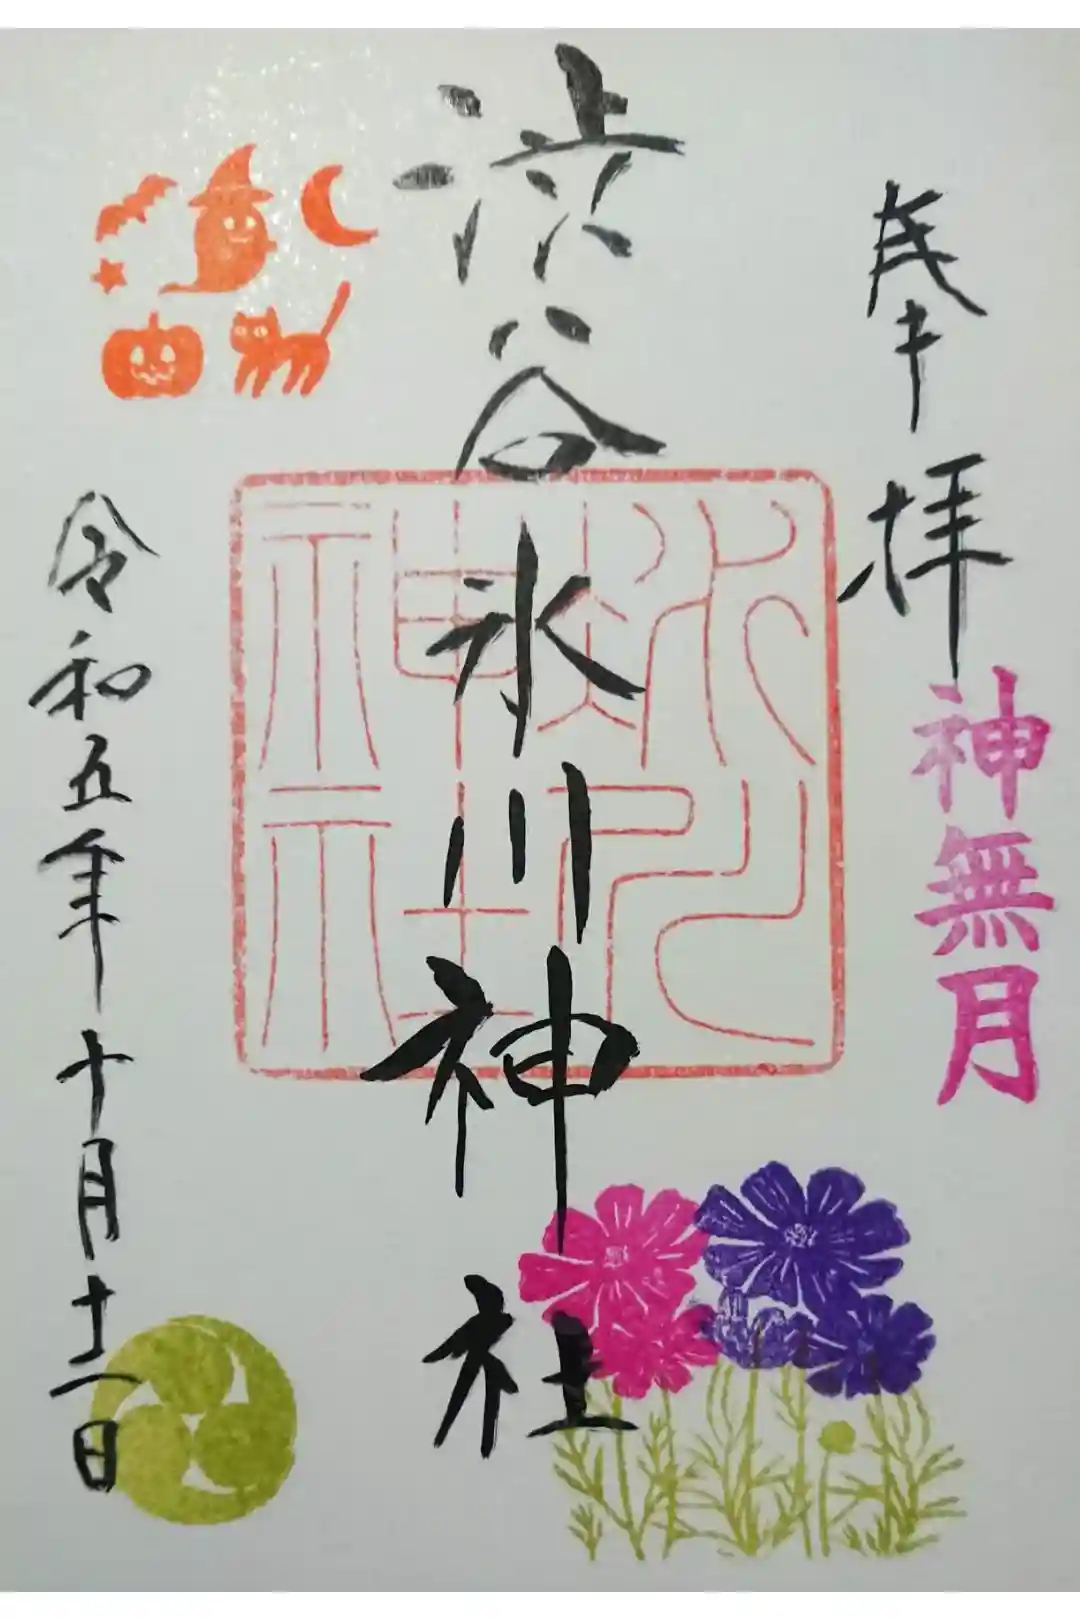 奉拝
神無月
渋谷氷川神社
澁谷氷川神社
令和五年十月十二日